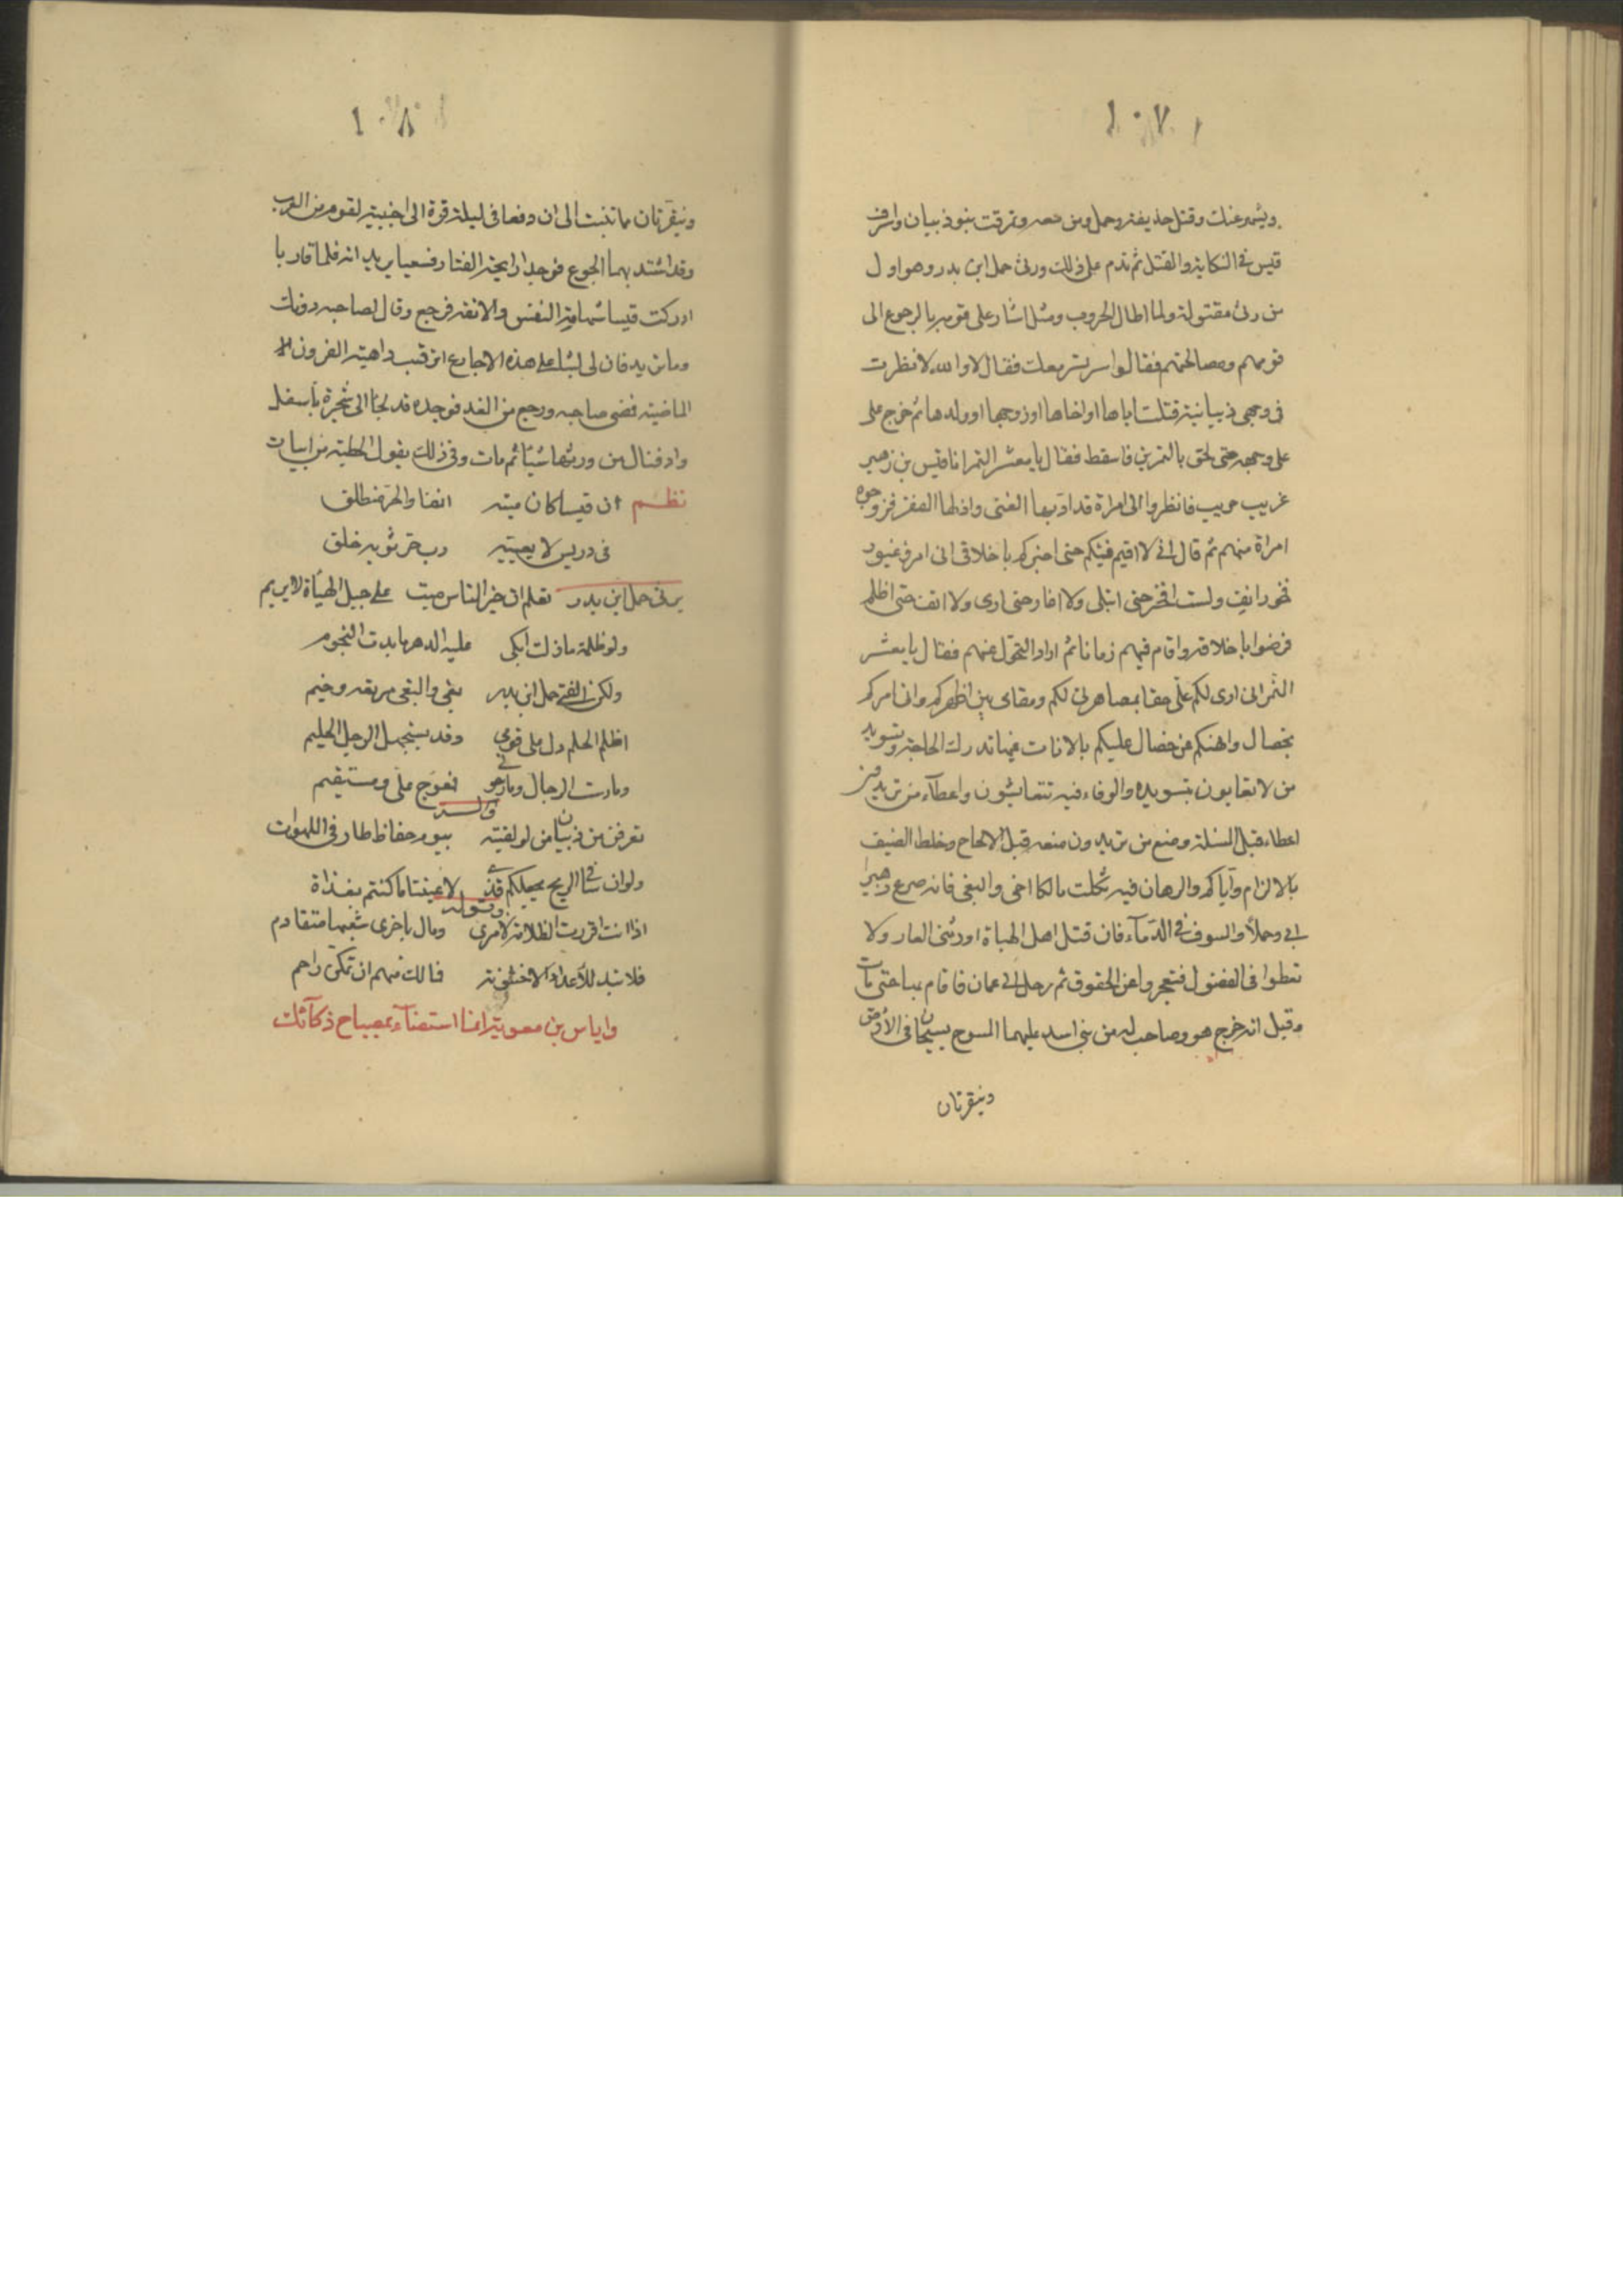 ١٠٧
ويثمر عنك وقتل حذيفة وحمل ومن معه وتفرقت بنو ذبيان واسرف
قيس في النكاية والقتل ثم ندم على ذلك ورثى حمل ابن بدر وهو اول
من رثى مقتوله ولما اطال الحروب ومل اشار على قومه بالرجوع الى
قومهم ومصالحتهم فقالوا سر نسر معك فقال لا والله لا نظرت
في وجهي ذبيانية قتلت اباها او اخاها او زوجها او ولدها ثم خرج على
على وجهه حتى لحق بالنمر بن قاسط فقال يا معشر النمر انا قيس بن زهير
غريب حريب فانظروا الى امراة قد ادبها الغنى واذلها الفقر فزوجوه
امراة منهم ثم قال اني لا اقيم فيكم حتى اخبركم باخلاقي اني امرؤ غيور
فخور انف ولست افخر حتى ابتلى ولا اغار حتى ارى ولا انف حتى اظلم
فرضوا باخلاقه واقام فيهم زمانا ثم اراد التحول عنهم فقال يا معشر
النمر اني ارى لكم علي حقا بمصاهرتي لكم ومقامي بين اظهركم واني امركم
بخصال وانهيكم عن خصال عليكم بالاناة فبها تدرك الحاجة وتسويد
من لا تعابون بتسويده والوفاء فيه تتعايشون واعطاء من تريدون
اعطاءه قبل المسئلة ومنع من تريدون منعه قبل الالحاح وخلط الضيف
بالالزام واياكم والرهان فيه ثكلت مالكا اخي والبغي فانه صرع زهيرا
ابي وحملا والسرف في الدماء فان قتل اهل الهباة اورثني العار ولا
تعطوا في الفضول فتعجزوا عن الحقوق ثم رحل الى عمان فاقام بها حتى مات
وقيل انه خرج هو وصاحب له من بني اسد عليهما المسوح يسيحان في الارض
ويتقوتان
١٠٨
ويتقوتان ما تنبت الى ان دفعا في ليلة قرة الى اخبية لقوم من العرب
وقد اشتد بهما الجوع فوجدا رايحة القتار فسعيا يريدانه فلما قاربا
ادركت قيسا شهامة النفس والانفة فرجع وقال لصاحبه دونك
وما تريد فان لي لبثا على هذه الاجارع اترقب داهية القرون
الماضية فمضى صاحبه ورجع من الغد فوجده قد لجأ الى شجرة بأسفل
واد فنال من ورقها شيئا ثم مات وفي ذلك يقول الحطيئة من ابيات
نظم ان قيسا كان ميته انفا والحر منطلق
في دريس لا يغيبه رب حر ثوبه خلق
يرثى حمل ابن بدر تعلم ان خير الناس ميت على جبل الهبأة لا يريم
ولو ظلمه ما زلت ابكي عليه الدهر ما بدت النجوم
ولكن الفتى حمل ابن بدر بغى والبغي مرتعه وخيم
اظلم الحلم دل على قومي وقد يستجهل الرجل الحليم
ومارست الرجال ومارسوني فعوج علي ومستقيم
وانشد
تعرفن من ذبيان من لو لقيته بيوم حفاظ طار في اللهوات
ولو ان سافي الريح يجعلكم قذى لاعيننا ما كنتم بقذاة
وقوله
اذا انت اقررت الظلامة لامرئ رماك باخرى شعبها متفاقم
فلا تبد للأعداء الا خشونة فما لك منهم ان تمكن راحم
واياس بن معوية انما استضآء بمصباح ذكآئك